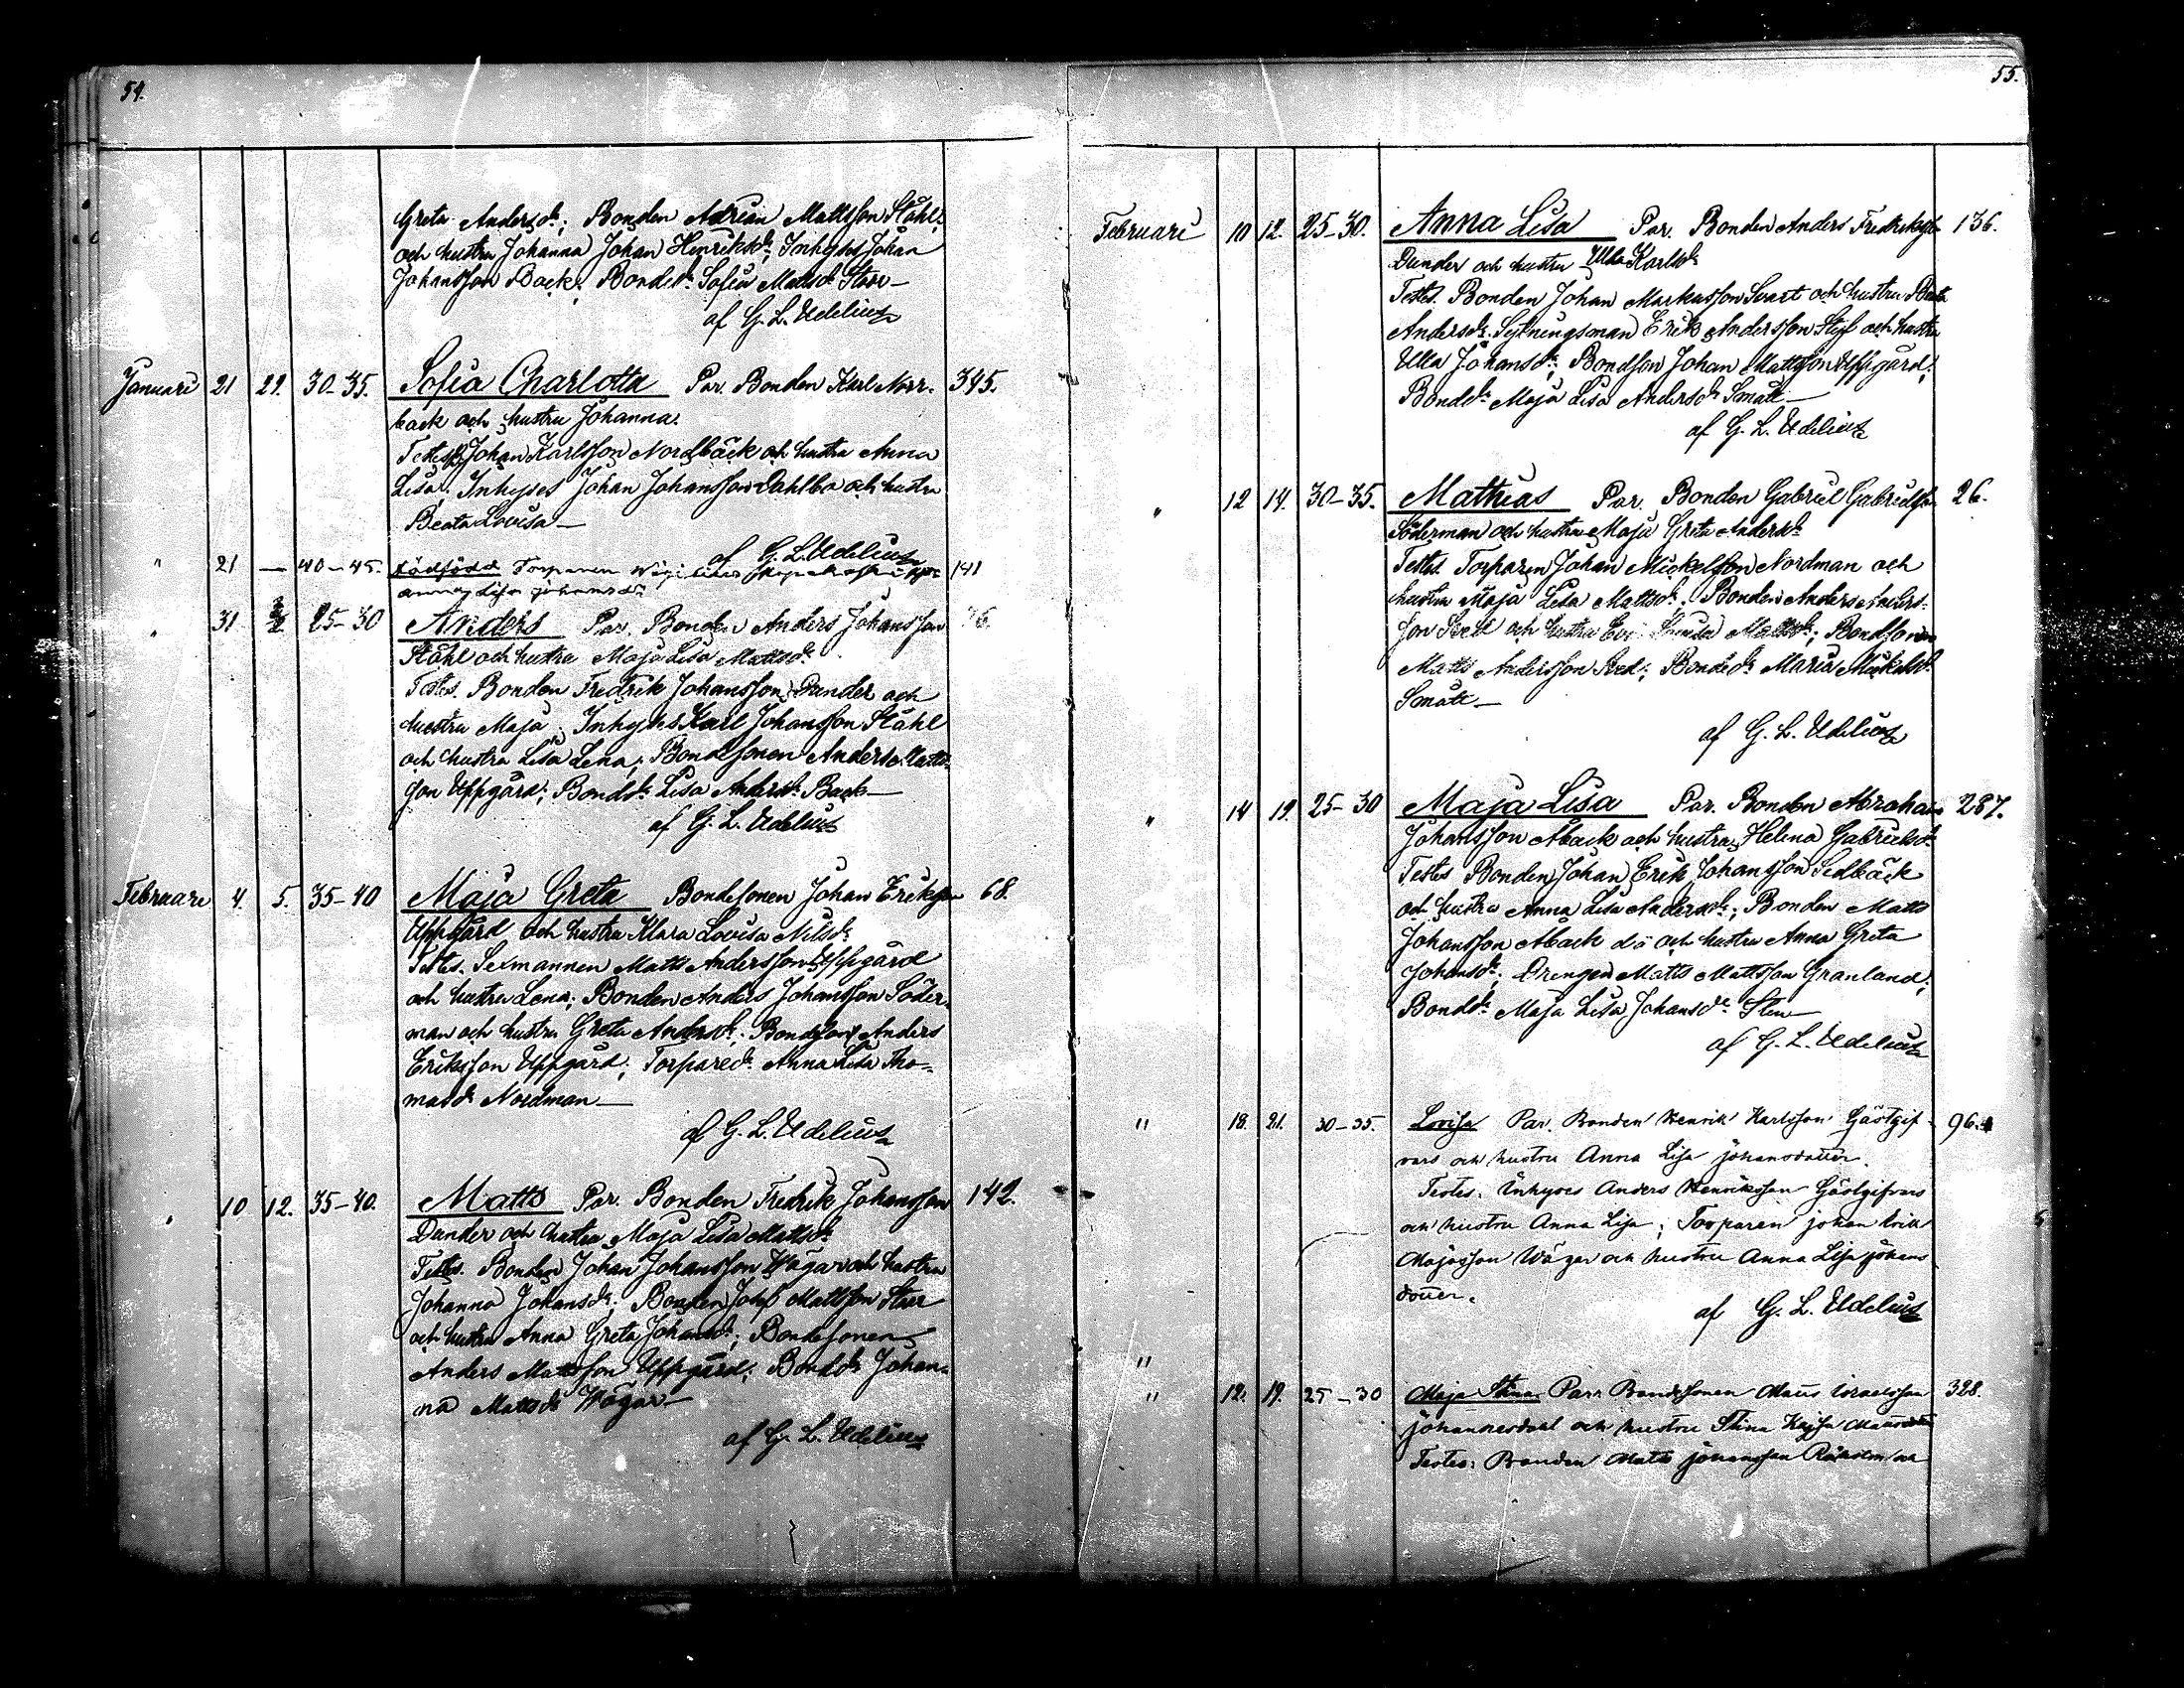 54.
Greta Andersdr; Bonden Adrian Mattsson Ståhl
och hustru Johanna Johan Henriksdr; Inhyses Johan
Johansson Back; Bondedr Sofia Mattsdr Storr —
af G. L. Udelius
Januari 21 29. 30-35. Sofia Charlotta Par. Bonden Karl Norr- 345.
back och hustru Johanna.
Testes Johan Karlsson Nordbäck och hustru Anna
Lisa; Inhyses Johan Johansson Dahlbo och hustru
Beata Lovisa —
af G. L. Udelius
" 21 — 40-45. dödfödd Torparen 141
Anna Lisa Johansdr
" 31 25-30 Anders Par. Bonden Anders Johansson 36.
Ståhl och hustru Maja Lisa Mattsdr
Testes. Bonden Fredrik Johansson Dunder och
hustru Maja; Inhyses Karl Johansson Ståhl
och hustru Lisa Lena; Bondesonen Anders Matts-
son Uppgård; Bondedr Lisa Andersdr Back —
af G. L. Udelius
Februari 4. 5. 35-40 Maja Greta Bondesonen Johan Eriksson 68.
Uppgård och hustru Klara Lovisa Nilsdr
Testes. Sexmannen Matts Andersson Uppgård
och hustru Lena; Bonden Anders Johansson Söder-
man och hustru Greta Andersdr; Bondeson Anders
Eriksson Uppgård; Torparedr Anna Lisa Tho-
masdr Nordman —
af G. L. Udelius
" 10 12. 35-40. Matts Par. Bonden Fredrik Johansson 142.
Dunder och hustru Maja Lisa Mattsdr
Testes. Bonden Johan Johansson Wägar och hustru
Johanna Johansdr; Bonden Josef Mattsson Storr
och hustru Anna Greta Johansdr; Bondesonen
Anders Mattsson Uppgård; Bondedr Johan-
na Mattsdr Wägar —
af G. L. Udelius
55.
Februari 10 12. 25-30. Anna Lisa Par. Bonden Anders Fredriksson 136.
Dunder och hustru Ulla Karlsdr
Testes. Bonden Johan Markusson Svart och hustru Beata
Andersdr; Sytningsman Erik Andersson Styf och hustru
Ulla Johansdr; Bondson Johan Mattsson Uppgård;
Bonddr Maja Lisa Andersdr Smått —
af G. L. Udelius
" 12 14. 30-35. Mathias Par. Bonden Gabriel Gabrielsson 26.
Söderman och hustru Maja Greta Andersdr
Testes. Torparen Johan Mickelsson Nordman och
hustru Maja Lisa Mattsdr; Bonden Anders Anders-
son och hustru Mattsdr; Bondsonen
Matts Andersson; Bondedr Maria Mickelsdr
Smått —
af G. L. Udelius
" 14 19. 25-30 Maja Lisa Par. Bonden Abraham 287.
Johansson Aback och hustru Helena Gabrielsdr
Testes Bonden Johan Erik Johansson Sedbäck
och hustru Anna Lisa Andersdr; Bonden Matts
Johansson Aback d:o och hustru Anna Greta
Johansdr; Drengen Matts Mattsson Granland;
Bonddr Maja Lisa Johansdr Sten —
af G. L. Udelius
" 18. 21. 30-35. Lovisa Par. Bonden Henrik Karlsson Gästgif- 96.
vars och hustru Anna Lisa Johansdotter.
Testes. Inhyses Anders Henriksson Gästgifvars
och hustru Anna Lisa; Torparen Johan Erik
Majasson Wägar och hustru Anna Lisa Johans
dotter.
af G. L. Udelius
"
" 12. 19. 25-30 Maja Stina Par. Bondesonen Matts Israelsson 328.
Johannesdahl och hustru Stina Kajsa Mattsdotter
Testes: Bonden Matts Johansson